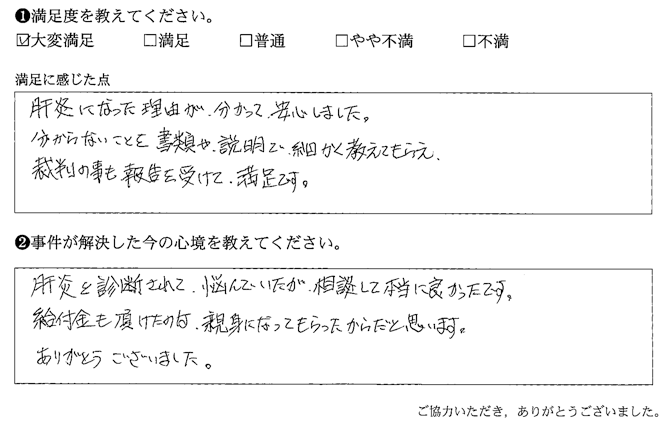 ❶満足度を教えてください。
☑大変満足 □満足 □普通 □やや不満 □不満
満足に感じた点
肝炎になった理由が、分かって、安心しました。
分からないことを書類や、説明で、細かく教えてもらえ、
裁判の事も報告を受けて、満足です。
❷事件が解決した今の心境を教えてください。
肝炎と診断されて、悩んでいたが、相談して本当に良かったです。
給付金も頂けたのは、親身になってもらったからだと思います。
ありがとうございました。
ご協力いただき，ありがとうございました。